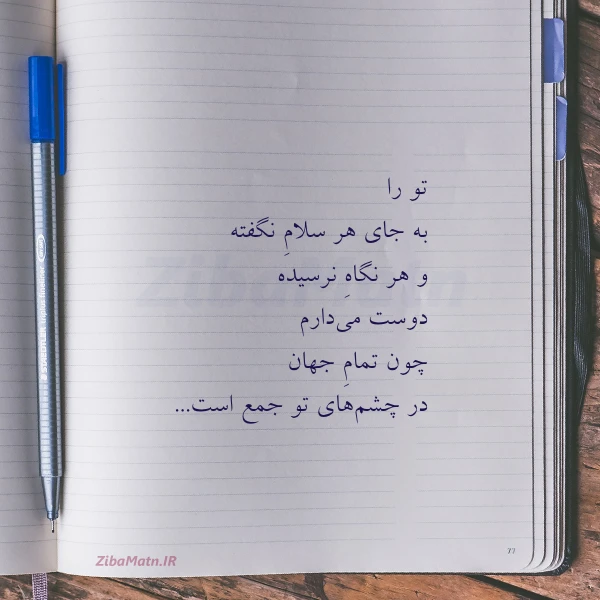 تو را
به جای هر سلامِ نگفته
و هر نگاهِ نرسیده
دوست می‌دارم
چون تمامِ جهان
در چشم‌های تو جمع است...
ZibaMatn
ZibaMatn.IR